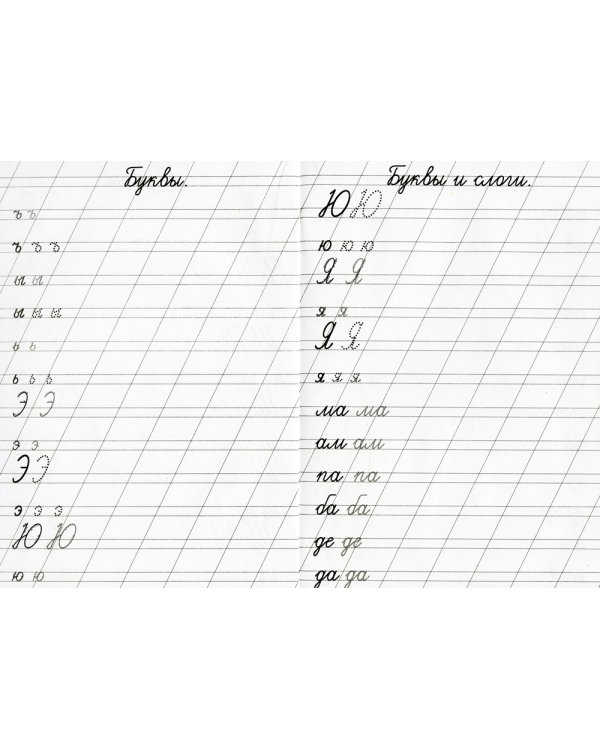 Буквы.
ъ ъ
ъ ъ ъ
ы ы
ы ы ы
ь ь
ь ь ь
Э Э
э э
Э Э
э э э
Ю Ю
ю ю
Буквы и слоги.
Ю Ю
ю ю ю
Я Я
я я
Я Я
я я я
ма ма
ам ам
па па
ба ба
де де
да да